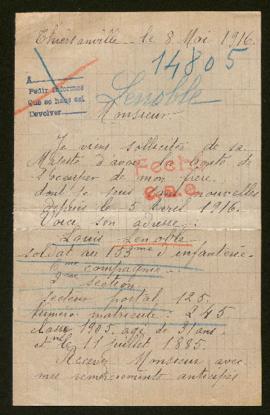 Thiersanville le 8 Mai 1916.
14805
A
Pedir informes
Que se haga así
Devolver
Lenoble
Monsieur
Je viens solliciter de sa
Majesté d'avoir la bonté de
s'occuper de mon frère
dont je suis sans nouvelles
depuis le 5 Avril 1916.
Voici son adresse:
Louis Lenoble
soldat au 153ème d'infanterie
compagnie
section
secteur postal 125.
Numéro matricule: 245
classe 1905. agé de 31 ans.
né le 11 juillet 1885.
Recevez Monsieur avec
mes remerciements anticipés